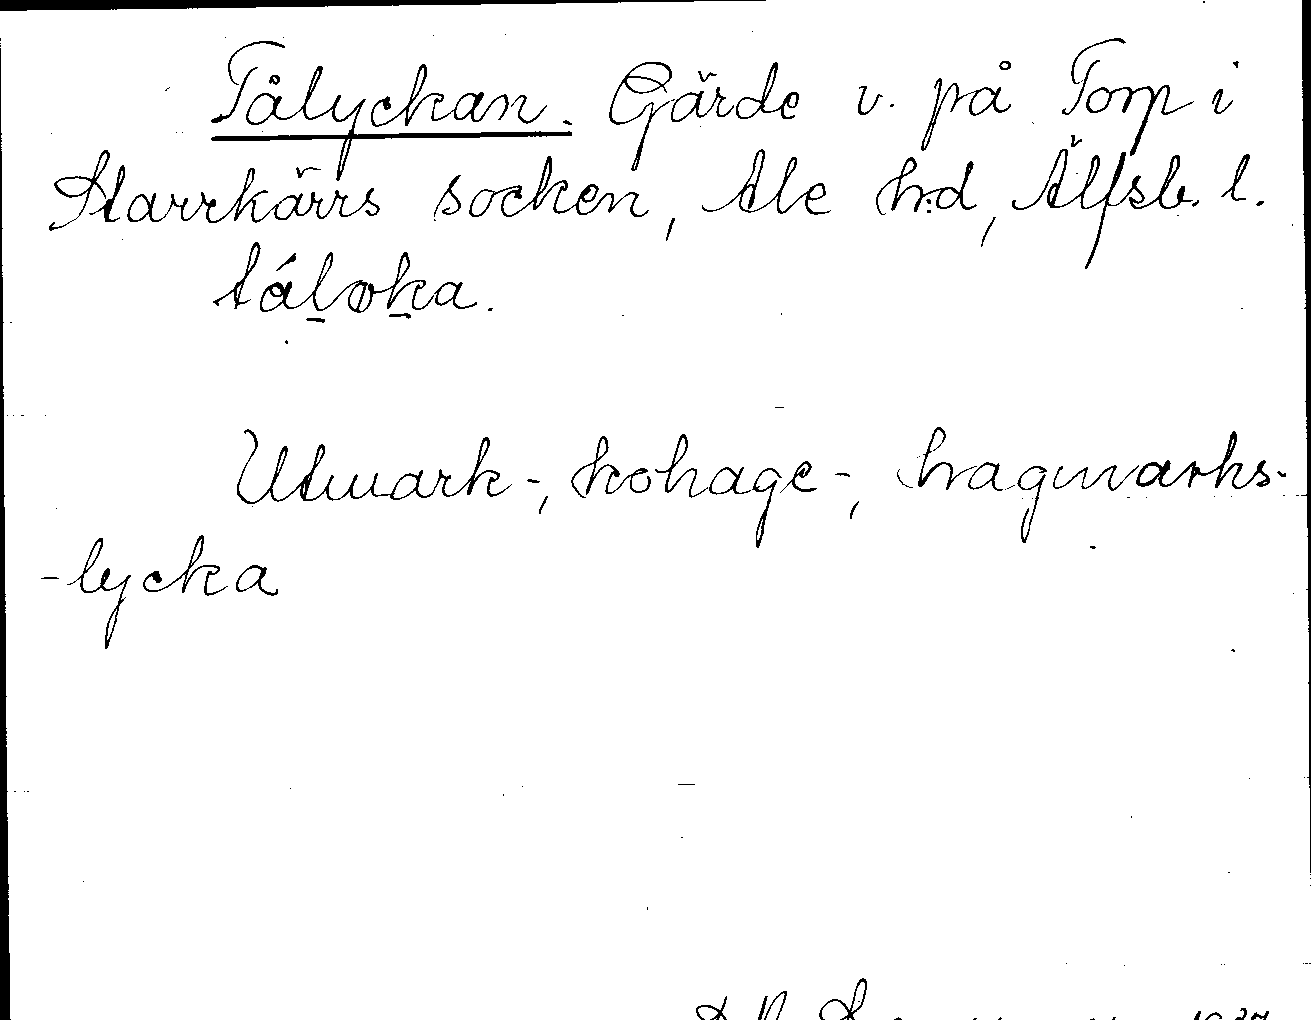 Tålyckan. Gärde v. på Torp i
Starrkärrs socken, Ale h:d, Älfsb. l.
tál̠øk̠a.
Utmark-, kohage-, hagmarks-
-lycka